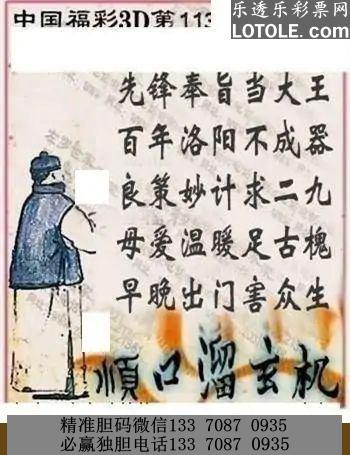 中国福彩3D第113
乐透乐彩票网
LOTOLE.com
先锋奉旨当大王
百年洛阳不成器
良策妙计求二九
母爱温暖足古槐
早晚出门害众生
顺口溜玄机
精准胆码微信133 7087 0935
必赢独胆电话133 7087 0935